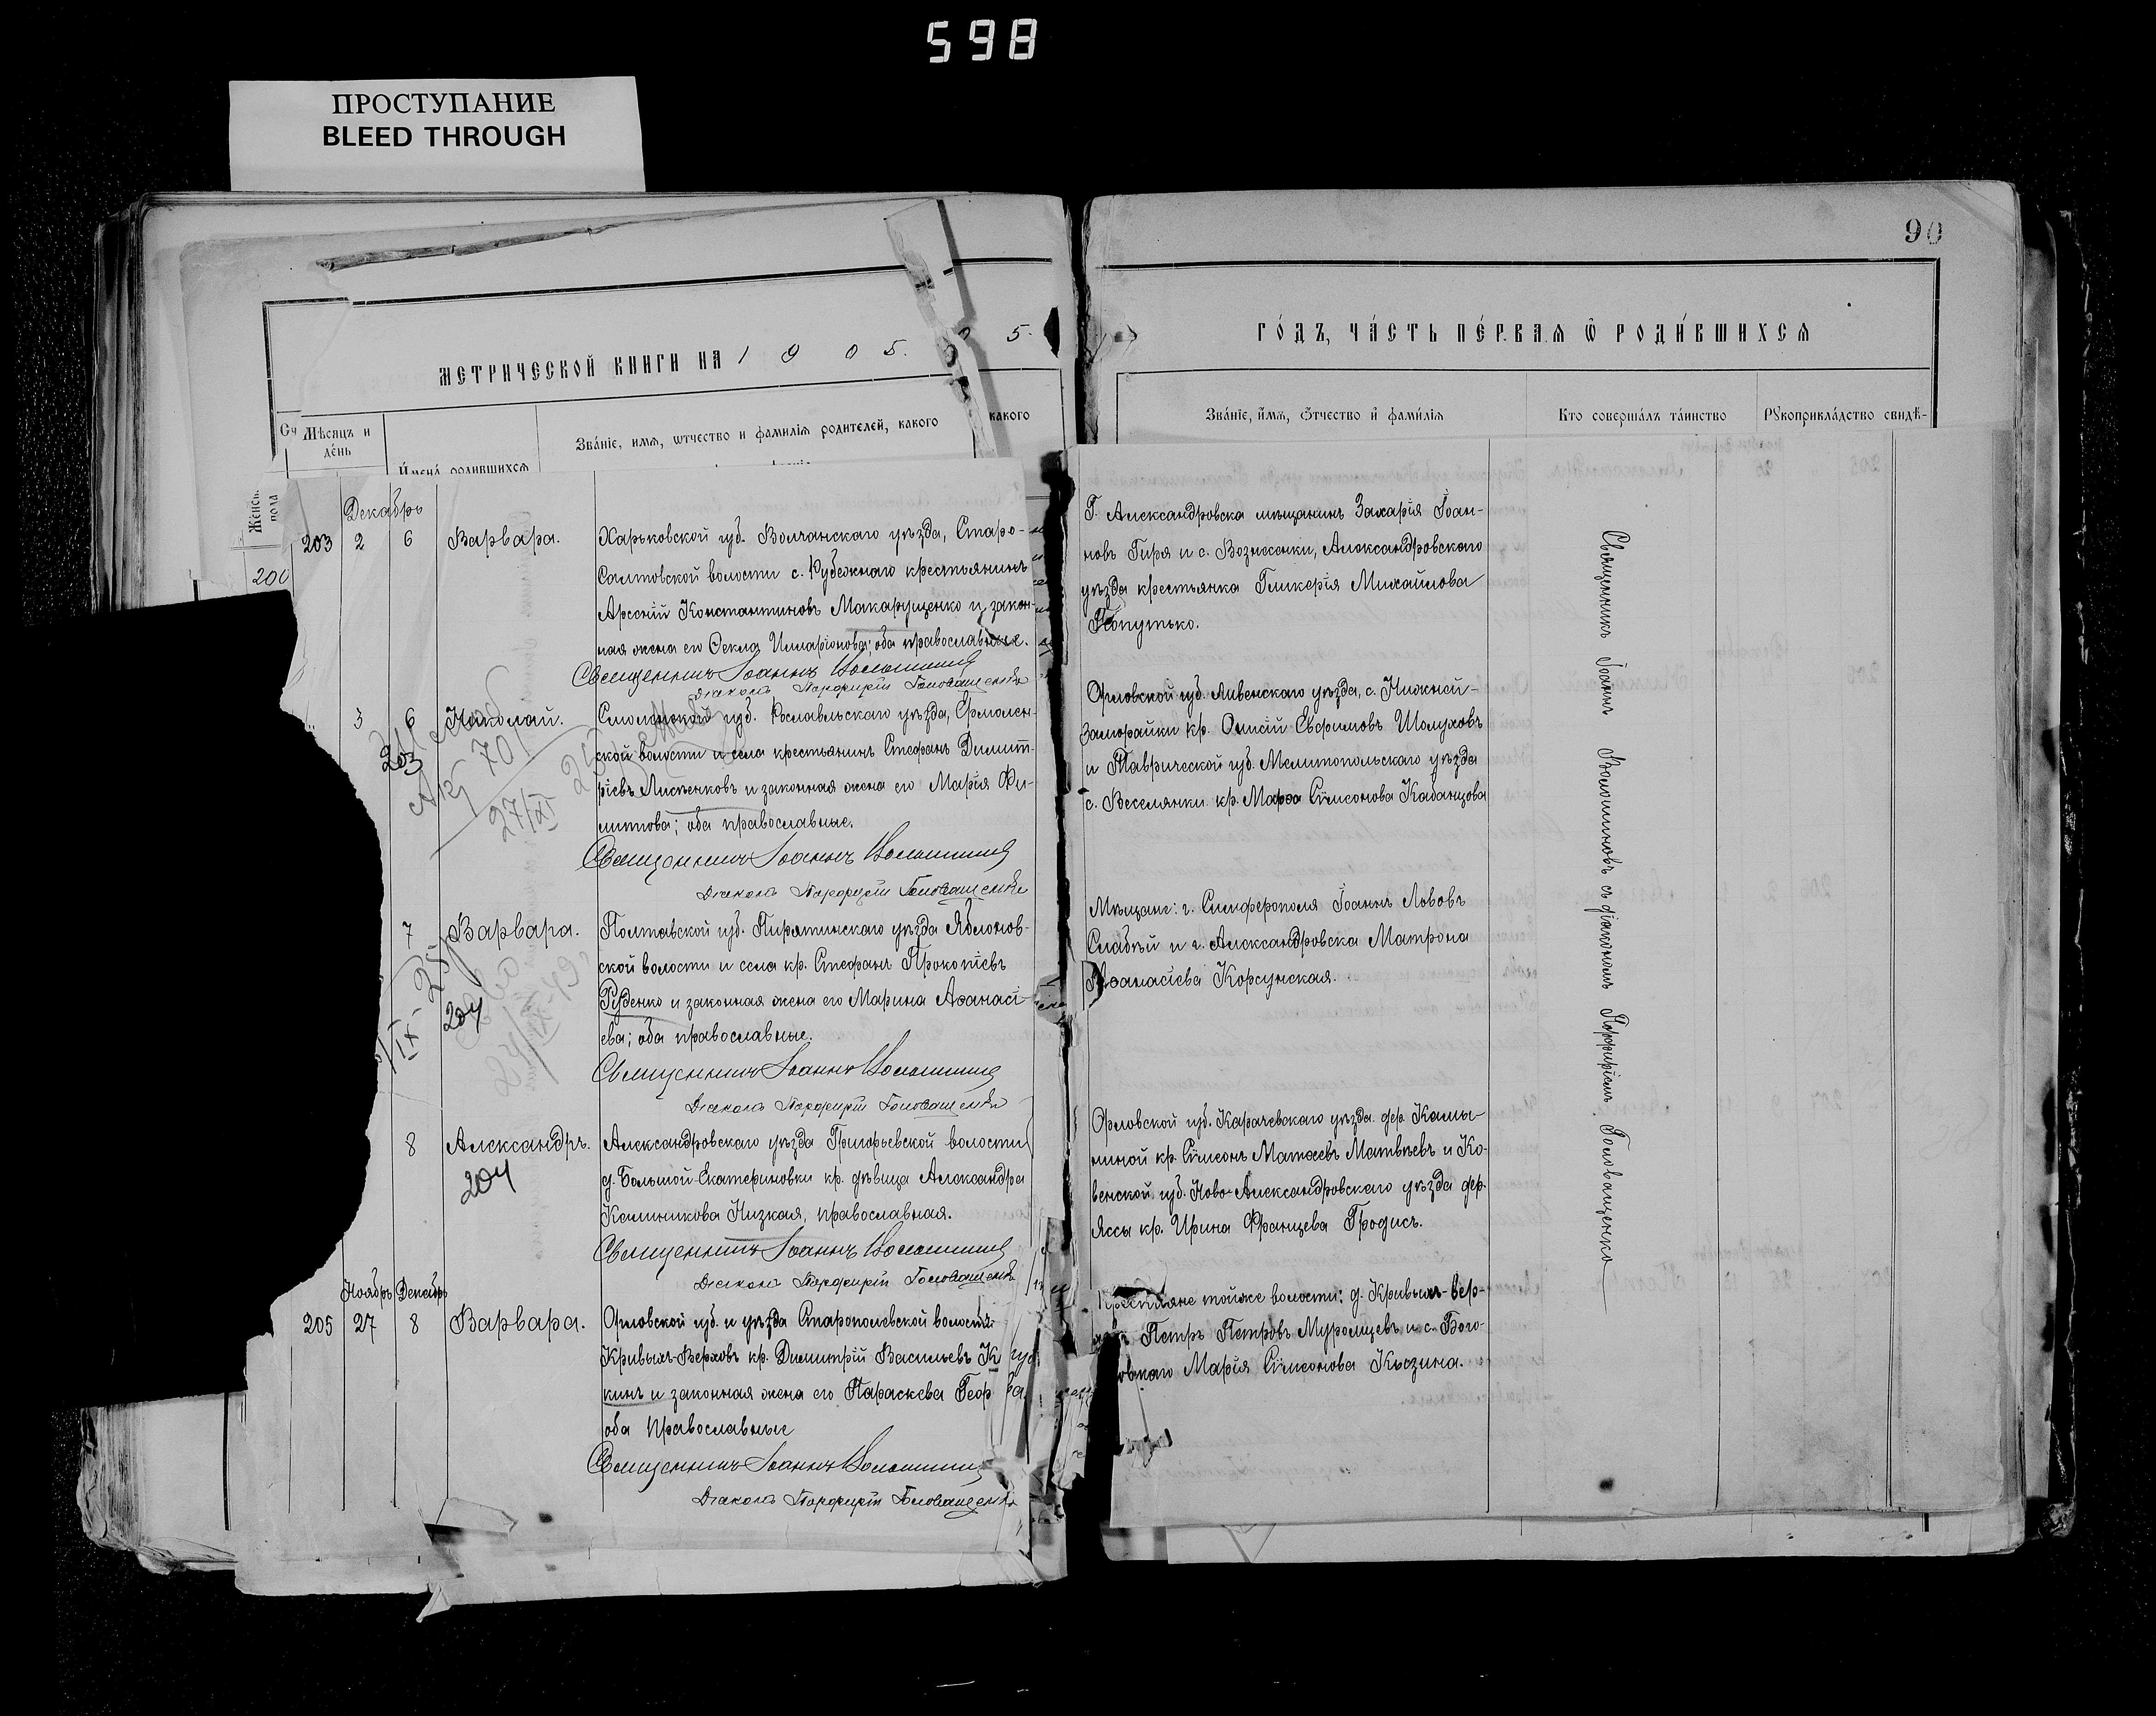 598
ПРОСТУПАНИЕ
BLEED THROUGH
90
МЕТРИЧЕСКОЙ КНИГИ НА 1905.
5.
ГО́ДЪ, ЧА́СТЬ ПЕ́РВАѦ Ѡ РОДИ́ВШИХСѦ
Сч
Мѣсяцъ и
де́нь
И́мена́ родившихсѧ
Зва́нїе, имѧ, ѡтчество и фамилїѧ родителей, какого
какого
Зва́нїе, и́мѧ, ѻ́тчество и҆ фами́лїѧ
Кто соверша́лъ та́инство
Рꙋкоприкла́дство свидѣ-
Женск.
пола
200
Декабрь
203 2 6 Варвара.
Харьковской губ. Волчанскаго уѣзда, Старо-
Салтовской волости с. Рубежнаго крестьянинъ
Арсеній Константиновъ Макарущенко и закон-
ная жена его Ѳекла Илларіонова; оба православные.
Священникъ Іоаннъ Волошиновъ
Діаконъ Порфирій Головащенко
Г. Александровска мѣщанинъ Захарія Іоан-
новъ Гиря и с. Вознесенки, Александровскаго
уѣзда крестьянка Гликерія Михайлова
Попутько.
3 6 Николай.
203
701
27/XI
Смоленской губ. Рославльскаго уѣзда, Ермолен-
ской волости и села крестьянинъ Стефанъ Димит-
ріевъ Лисненковъ и законная жена его Марія Фи-
липпова; оба православные.
Священникъ Іоаннъ Волошиновъ
Діаконъ Порфирій Головащенко
Орловской губ. Ливенскаго уѣзда, с. Нижней-
Заморайки кр. Онисій Евфимовъ Шолуховъ
и Таврической губ. Мелитопольскаго уѣзда
с. Веселянки кр. Марѳа Сѵмеонова Кабанцова
7 Варвара.
204
Полтавской губ. Пирятинскаго уѣзда Яблонов-
ской волости и села кр. Стефанъ Прокопіевъ
Руденко и законная жена его Марина Аѳанасі-
ева; оба православные.
Священникъ Іоаннъ Волошиновъ
Діаконъ Порфирій Головащенко
Мѣщане: г. Симферополя Іоаннъ Львовъ
Слабый и г. Александровска Матрона
Аѳанасіева Корсунская.
8 Александръ.
204
Александровскаго уѣзда Григорьевской волости
д. Большой-Екатериновки кр. дѣвица Александра
Калиникова Низкая, православная.
Священникъ Іоаннъ Волошиновъ
Діаконъ Порфирій Головащенко
Орловской губ. Карачевскаго уѣзда дер. Камы-
ниной кр. Сѵмеонъ Матѳеевъ Матвѣевъ и Ко-
венской губ. Ново-Александровскаго уѣзда дер.
Яссы кр. Ирина Францева Гродисъ.
Ноябрь Декабрь
205 27 8 Варвара.
Орловской губ. и уѣзда Старопольской волости
Кривыхъ-Верховъ кр. Димитрій Васильевъ К
кинъ и законная жена его Параскева Геор
оба православные
Священникъ Іоаннъ Волошиновъ
Діаконъ Порфирій Головащенко
Крестьяне тойже волости: д. Кривыхъ-Вер-
Петръ Петровъ Муромцевъ и с. Бого-
Марія Сѵмеонова Кьозина.
Священникъ Іоаннъ Волошиновъ съ діакономъ Порфиріемъ Головащенко